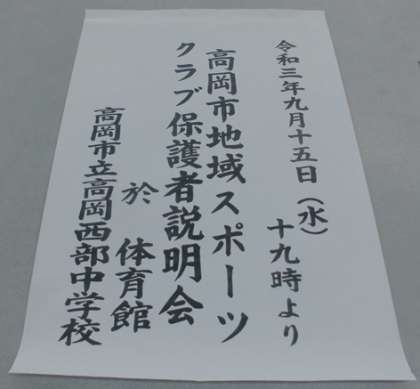 令和三年九月十五日(水)
十九時より
高岡市地域スポーツ
クラブ保護者説明会
於 体育館
高岡市立高岡西部中学校